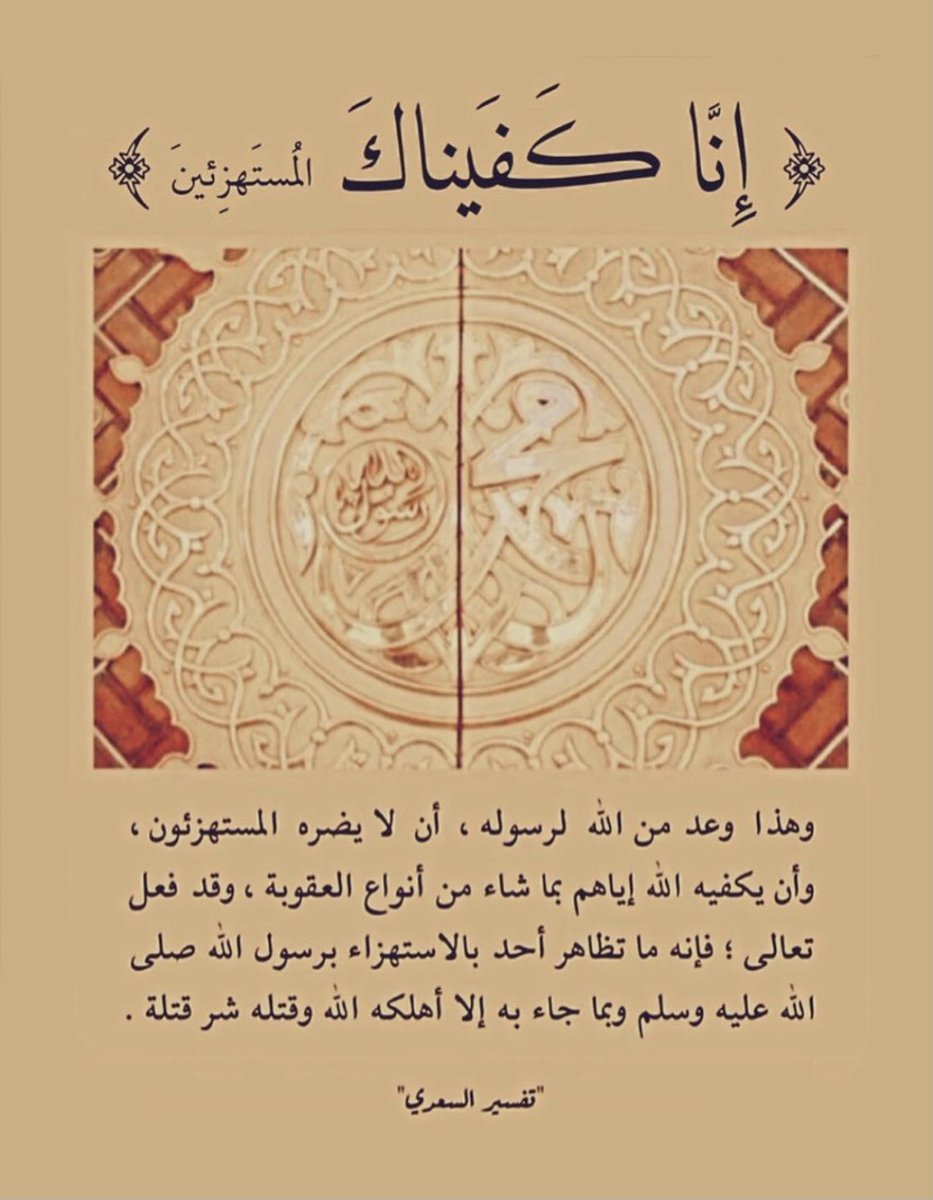 ﴿ إِنَّا كَفَيناكَ المُستَهزِئينَ ﴾
محمد
رسول الله
وهذا وعد من الله لرسوله ، أن لا يضره المستهزئون ،
وأن يكفيه الله إياهم بما شاء من أنواع العقوبة ، وقد فعل
تعالى ؛ فإنه ما تظاهر أحد بالاستهزاء برسول الله صلى
الله عليه وسلم وبما جاء به إلا أهلكه الله وقتله شر قتلة .
"تفسير السعدي"